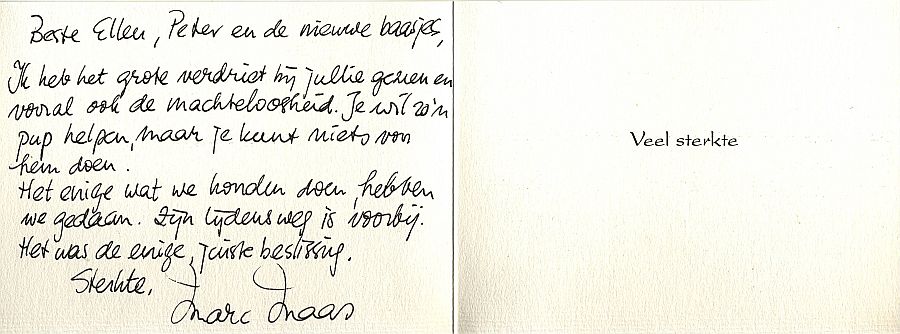 Beste Ellen, Peter en de nieuwe baasjes,
Ik heb het grote verdriet bij jullie gezien en
vooral ook de machteloosheid. Je wil zo'n
pup helpen, maar je kunt niets voor
hem doen.
Het enige wat we konden doen, hebben
we gedaan. Zijn lijdensweg is voorbij.
Het was de enige, juiste beslissing.
Sterkte,
Marc Maas
Veel sterkte